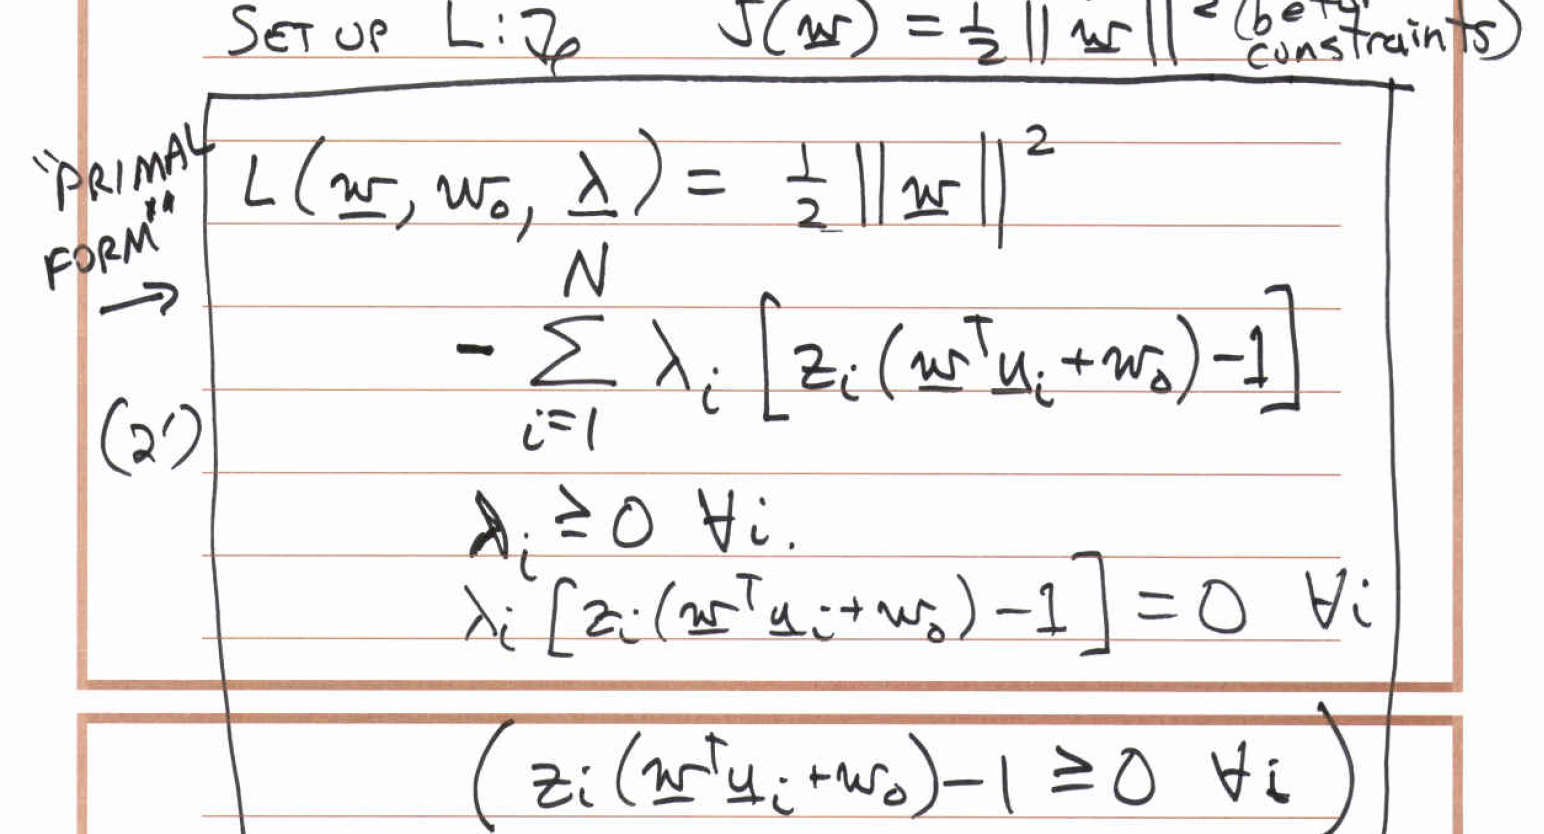 SET UP L: J(w) = ½ ||w||² (
constraints)
"PRIMAL FORM" →
L(w, w₀, λ) = ½ ||w||²
(2') - Σ_{i=1}^{N} λᵢ [zᵢ(wᵀuᵢ + w₀) - 1]
λᵢ ≥ 0 ∀i.
λᵢ [zᵢ(wᵀuᵢ + w₀) - 1] = 0 ∀i
(zᵢ(wᵀuᵢ + w₀) - 1 ≥ 0 ∀i)